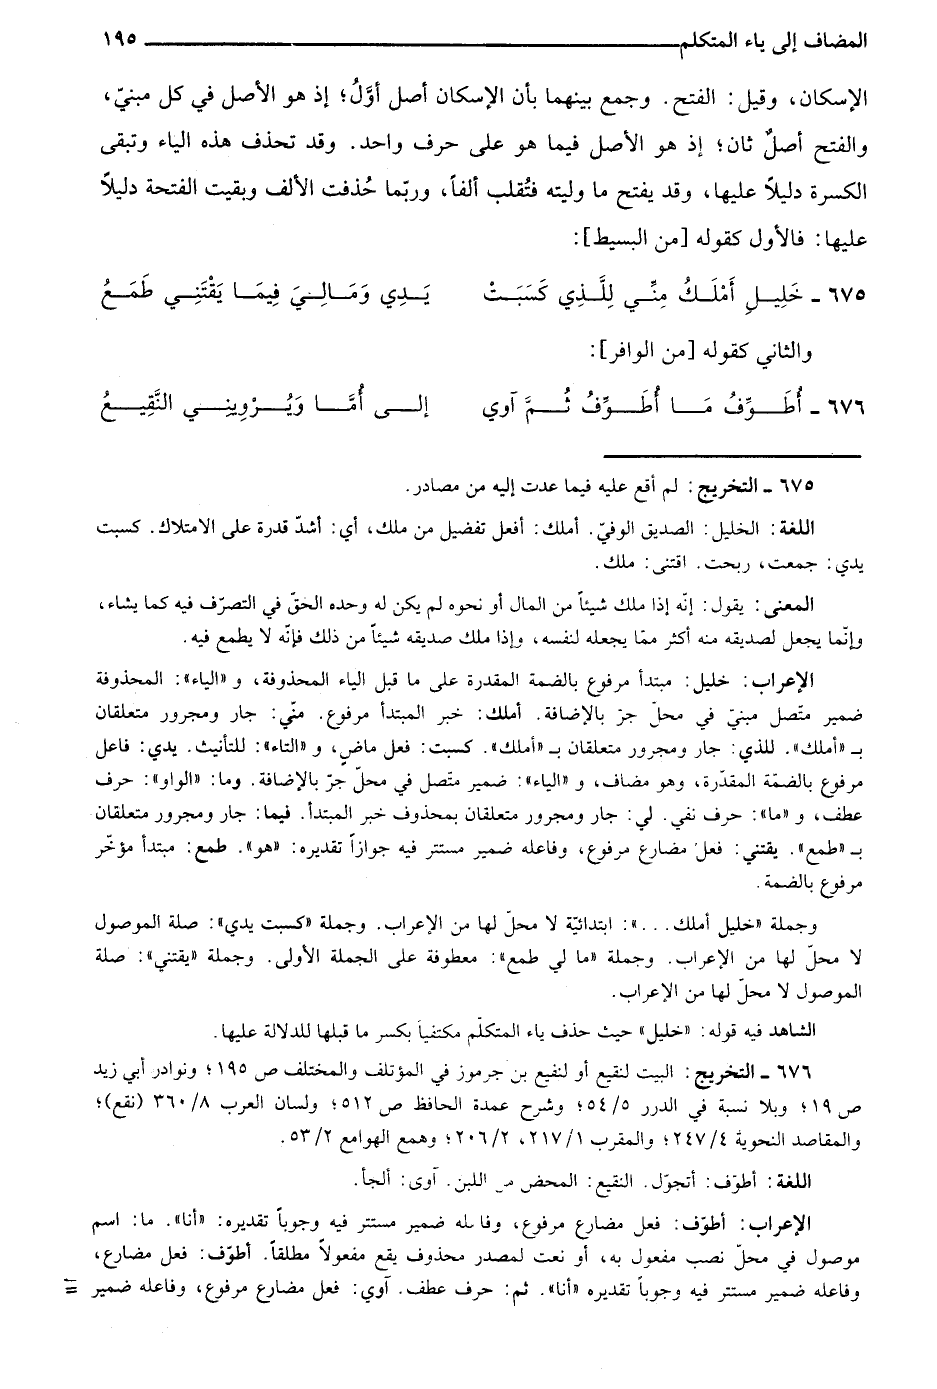 المضاف إلى ياء المتكلم ١٩٥
الإسكان، وقيل: الفتح. وجمع بينهما بأن الإسكان أصل أوَّلُ؛ إذ هو الأصل في كل مبنيّ،
والفتح أصلٌ ثان؛ إذ هو الأصل فيما هو على حرف واحد. وقد تحذف هذه الياء وتبقى
الكسرة دليلاً عليها، وقد يفتح ما وليته فتُقلب ألفاً، وربّما حُذفت الألف وبقيت الفتحة دليلاً
عليها: فالأول كقوله [من البسيط]:
٦٧٥ ـ خَلِيلِ أَمْلَكُ مِنِّي لِلَّذِي كَسَبَتْ يَدِي وَمَالِيَ فِيمَا يَقْتَنِي طَمَعُ
والثاني كقوله [من الوافر]:
٦٧٦ ـ أُطَوِّفُ مَا أُطَوِّفُ ثُمَّ آوي إلى أُمَّا وَيُرْوِينِي النَّقِيعُ
٦٧٥ ـ التخريج: لم أقع عليه فيما عدت إليه من مصادر.
اللغة: الخليل: الصديق الوفيّ. أملك: أفعل تفضيل من ملك، أي: أشدّ قدرة على الامتلاك. كسبت
يدي: جمعت، ربحت. اقتنى: ملك.
المعنى: يقول: إنّه إذا ملك شيئاً من المال أو نحوه لم يكن له وحده الحقّ في التصرّف فيه كما يشاء،
وإنّما يجعل لصديقه منه أكثر ممّا يجعله لنفسه، وإذا ملك صديقه شيئاً من ذلك فإنّه لا يطمع فيه.
الإعراب: خليل: مبتدأ مرفوع بالضمة المقدرة على ما قبل الياء المحذوفة، و «الياء»: المحذوفة
ضمير متّصل مبنيّ في محلّ جرّ بالإضافة. أملك: خبر المبتدأ مرفوع. منّي: جار ومجرور متعلقان
بـ «أملك». للذي: جار ومجرور متعلقان بـ «أملك». كسبت: فعل ماضٍ، و «التاء»: للتأنيث. يدي: فاعل
مرفوع بالضمّة المقدّرة، وهو مضاف، و «الياء»: ضمير متّصل في محلّ جرّ بالإضافة. وما: «الواو»: حرف
عطف، و «ما»: حرف نفي. لي: جار ومجرور متعلقان بمحذوف خبر المبتدأ. فيما: جار ومجرور متعلقان
بـ «طمع». يقتني: فعل مضارع مرفوع، وفاعله ضمير مستتر فيه جوازاً تقديره: «هو». طمع: مبتدأ مؤخّر
مرفوع بالضمة.
وجملة «خليل أملك...»: ابتدائيّة لا محلّ لها من الإعراب. وجملة «كسبت يدي»: صلة الموصول
لا محلّ لها من الإعراب. وجملة «ما لي طمع»: معطوفة على الجملة الأولى. وجملة «يقتني»: صلة
الموصول لا محلّ لها من الإعراب.
الشاهد فيه قوله: «خليل» حيث حذف ياء المتكلّم مكتفياً بكسر ما قبلها للدلالة عليها.
٦٧٦ ـ التخريج: البيت لنقيع أو لنفيع بن جرموز في المؤتلف والمختلف ص ١٩٥؛ ونوادر أبي زيد
ص ١٩؛ وبلا نسبة في الدرر ٥/ ٥٤؛ وشرح عمدة الحافظ ص ٥١٢؛ ولسان العرب ٨/ ٣٦٠ (نقع)؛
والمقاصد النحوية ٤/ ٢٤٧؛ والمقرب ١/ ٢١٧، ٢/ ٢٠٦؛ وهمع الهوامع ٢/ ٥٣.
اللغة: أطوّف: أتجوّل. النقيع: المحض من اللبن. آوى: ألجأ.
الإعراب: أطوّف: فعل مضارع مرفوع، وفاعله ضمير مستتر فيه وجوباً تقديره: «أنا». ما: اسم
موصول في محلّ نصب مفعول به، أو نعت لمصدر محذوف يقع مفعولاً مطلقاً. أطوّف: فعل مضارع،
وفاعله ضمير مستتر فيه وجوباً تقديره «أنا». ثم: حرف عطف. آوي: فعل مضارع مرفوع، وفاعله ضمير =